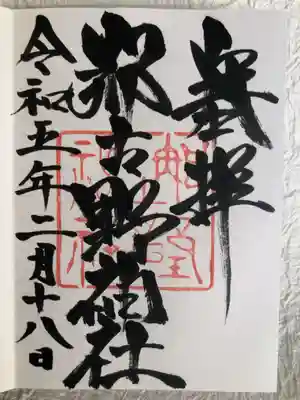 奉拝
那古野神社
令和五年二月十八日